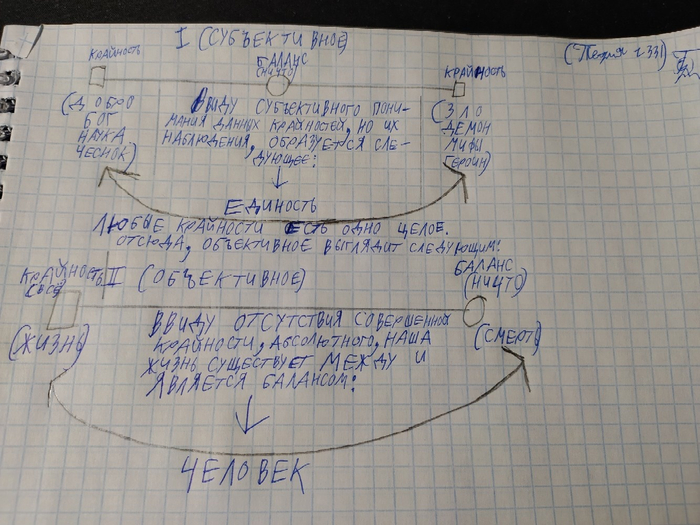 I (СУБЪЕКТИВНОЕ)
КРАЙНОСТЬ
БАЛАНС
(НИЧТО)
КРАЙНОСТЬ
(ДОБРО
БОГ
НАУКА
ЧЕСНОК)
ВВИДУ СУБЪЕКТИВНОГО ПОНИ-
МАНИЯ ДАННЫХ КРАЙНОСТЕЙ, НО ИХ
НАБЛЮДЕНИЯ, ОБРАЗУЕТСЯ СЛЕ-
ДУЮЩЕЕ:
(ЗЛО
ДЕМОН
МИФЫ
ГЕРОИН)
ЕДИНОСТЬ
ЛЮБЫЕ КРАЙНОСТИ ЕСТЬ ОДНО ЦЕЛОЕ.
ОТСЮДА, ОБЪЕКТИВНОЕ ВЫГЛЯДИТ СЛЕДУЮЩИМ:
II (ОБЪЕКТИВНОЕ)
КРАЙНОСТЬ
БАЛАНС
(НИЧТО)
(ЖИЗНЬ)
ВВИДУ ОТСУТСТВИЯ СОВЕРШЕННЫХ
КРАЙНОСТИ, АБСОЛЮТНОГО, НАША
ЖИЗНЬ СУЩЕСТВУЕТ МЕЖДУ И
ЯВЛЯЕТСЯ БАЛАНСОМ:
(СМЕРТЬ)
ЧЕЛОВЕК